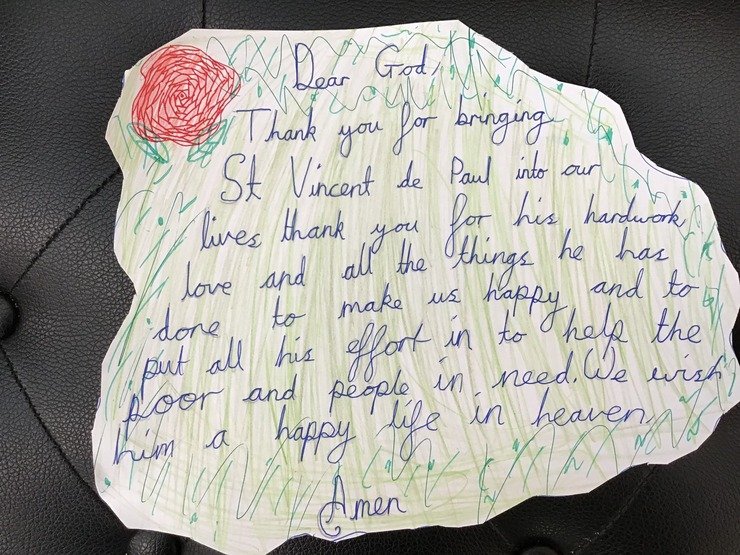 Dear God,
Thank you for bringing
St Vincent de Paul into our
lives thank you for his hardwork
love and all the things he has
done to make us happy and to
put all his effort in to help the
poor and people in need. We wish
him a happy life in heaven.
Amen